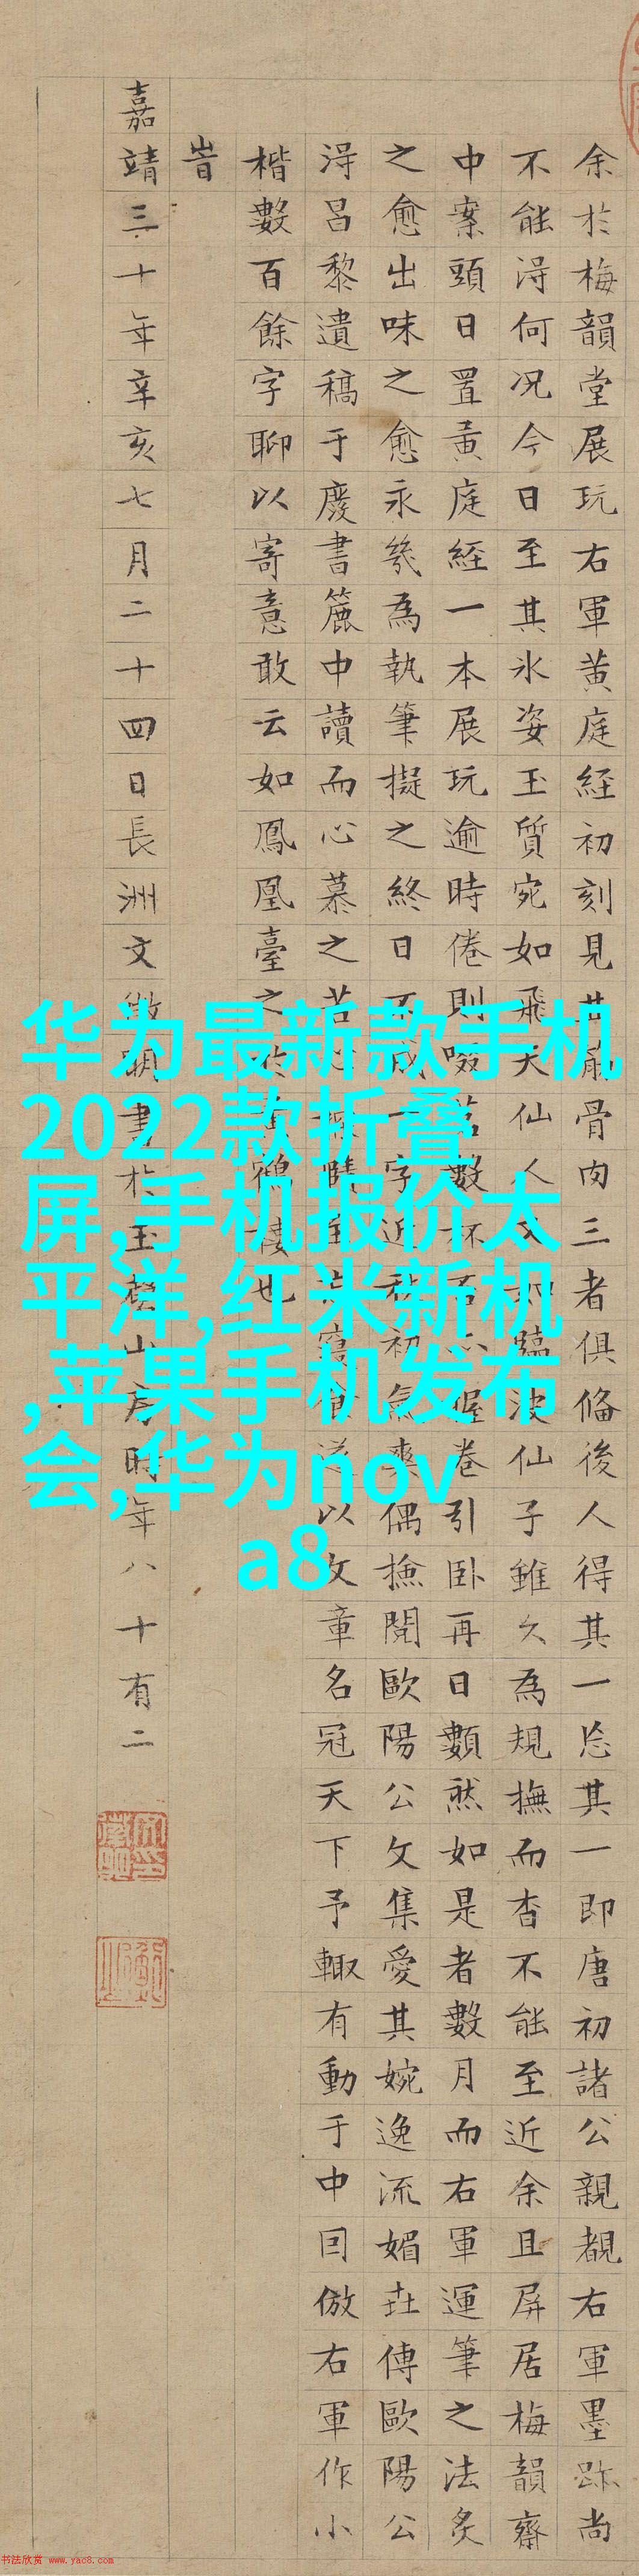 余於梅韻堂展玩右軍黄庭経初刻見其骨肉三者俱俻後人得其一忘其一即唐初諸公親覩右軍墨跡尚
不能淂何况今日至其氷姿玉質宛如飛天仙人仙子雖久為規撫而杳不能至近余且屏居梅韻齋
中案頭日置黄庭経一本展玩逾時倦則啜茗數杯卷引卧再日數然如是者數月而右軍運筆之法炙
之愈出味之愈永幾為執筆擬之終日不成一字近初偶撿閲歐陽公文集愛其婉逸流媚傳歐陽公
淂吕黎遺稿于廢書簏中讀而心慕之苦以文章名冠天下予輙有動于中囙倣右軍作小
楷數百餘字聊以寄意敢云如鳳凰臺之於黄鶴樓也
旹
嘉靖三十年辛亥七月二十四日長洲文徵明書於玉磬山房時年八十有二
华为最新款手机
2022款折叠
屏,手机报价太
平洋,红米新机
,苹果手机发布
会,华为nov
a8
书法欣赏 www.yac8.com